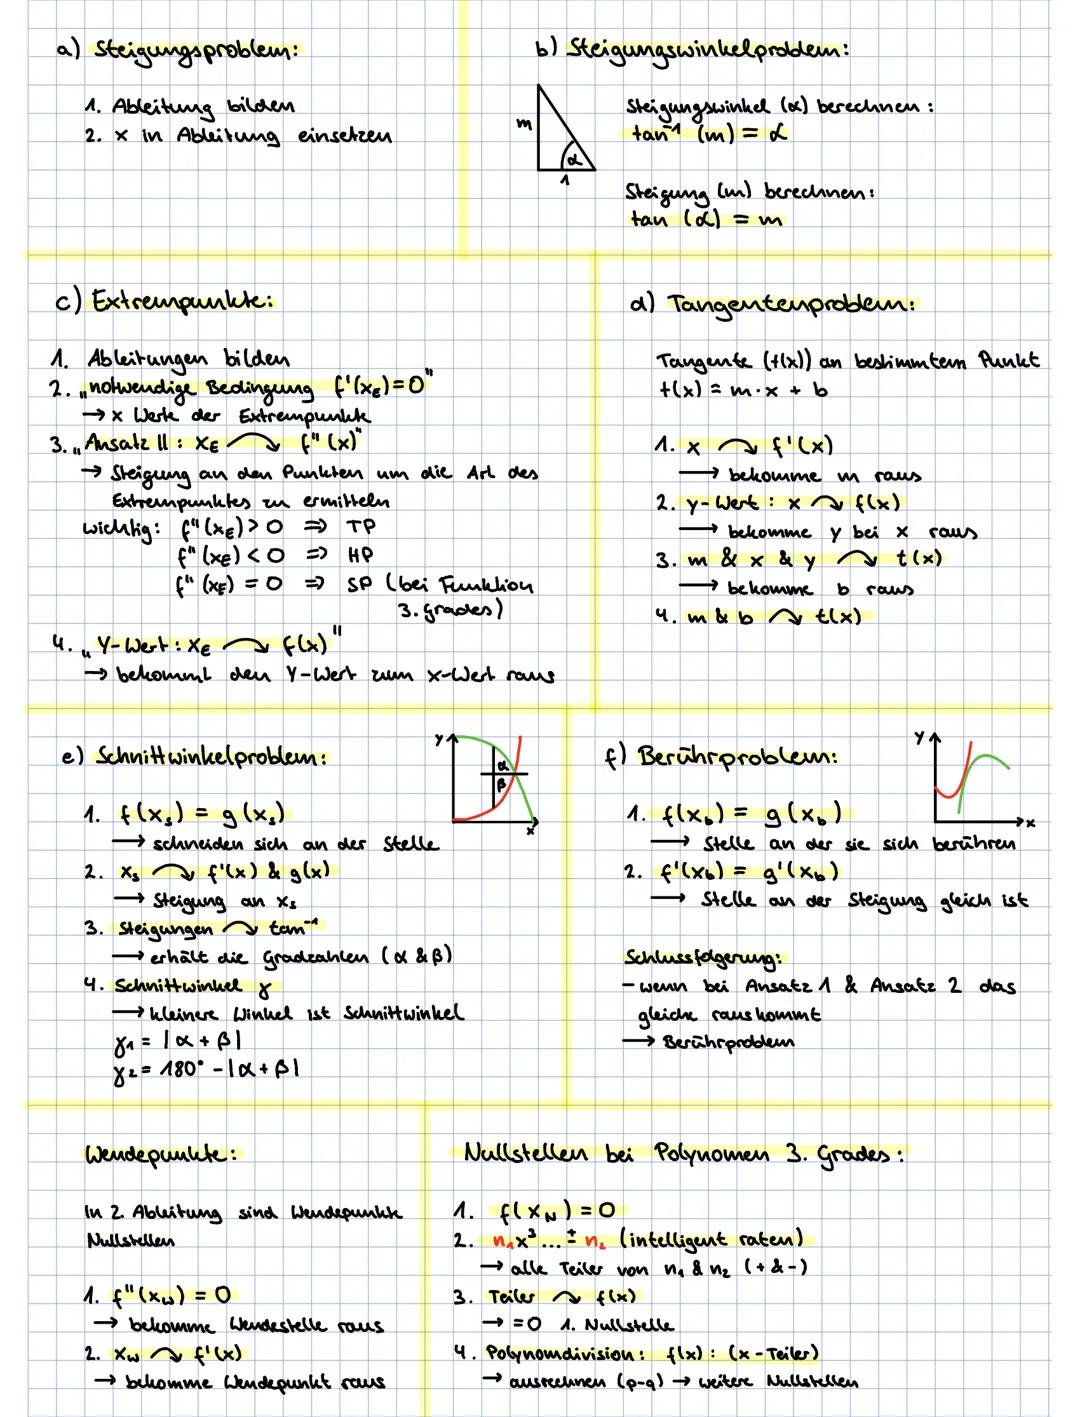 a) Steigungsproblem:
1. Ableitung bilden
2. x in Ableitung einsetzen
b) Steigungswinkelproblem:
m
α
1
Steigungswinkel (α) berechnen:
tan⁻¹ (m) = α
Steigung (m) berechnen:
tan (α) = m
c) Extrempunkte:
1. Ableitungen bilden
2. „notwendige Bedingung f'(xE)=0"
→ x Werte der Extrempunkte
3. „Ansatz II: xE ↷ f''(x)"
→ Steigung an den Punkten um die Art des
Extrempunktes zu ermitteln
wichtig: f''(xE) > 0 ⇒ TP
f''(xE) < 0 ⇒ HP
f''(xE) = 0 ⇒ SP (bei Funktion
3. Grades)
4. „Y-Wert: xE ↷ f(x)"
→ bekommt den Y-Wert zum x-Wert raus
d) Tangentenproblem:
Tangente (t(x)) an bestimmtem Punkt
t(x) = m·x + b
1. x ↷ f'(x)
→ bekomme m raus
2. y-Wert: x ↷ f(x)
→ bekomme y bei x raus
3. m & x & y ↷ t(x)
→ bekomme b raus
4. m & b ↷ t(x)
e) Schnittwinkelproblem:
y
α
β
x
1. f(xs) = g(xs)
→ schneiden sich an der Stelle
2. xs ↷ f'(x) & g(x)
→ Steigung an xs
3. Steigungen ↷ tan⁻¹
→ erhält die Gradzahlen (α & β)
4. Schnittwinkel γ
→ kleinere Winkel ist Schnittwinkel
γ₁ = |α + β|
γ₂ = 180° - |α + β|
f) Berührproblem:
y
x
1. f(xb) = g(xb)
→ Stelle an der sie sich berühren
2. f'(xb) = g'(xb)
→ Stelle an der Steigung gleich ist
Schlussfolgerung:
- wenn bei Ansatz 1 & Ansatz 2 das
gleiche rauskommt
→ Berührproblem
Wendepunkte:
In 2. Ableitung sind Wendepunkte
Nullstellen
1. f''(xw) = 0
→ bekomme Wendestelle raus
2. xw ↷ f'(x)
→ bekomme Wendepunkt raus
Nullstellen bei Polynomen 3. Grades:
1. f(xN) = 0
2. n₁x³... ± n₂ (intelligent raten)
→ alle Teiler von n₁ & n₂ (+ & -)
3. Teiler ↷ f(x)
→ =0 1. Nullstelle
4. Polynomdivision: f(x) : (x - Teiler)
→ ausrechnen (p-q) → weitere Nullstellen